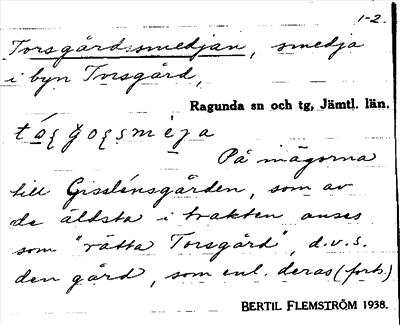 1-2.
Torsgårdssmedjan, smedja
i byn Torsgård,
Ragunda sn och tg, Jämtl. län.
På mågorna
till Gisslénsgården, som av
de äldsta i trakten anses
som "rätta Torsgård", d.v.s.
den gård, som enl. deras (forts.)
BERTIL FLEMSTRÖM 1938.